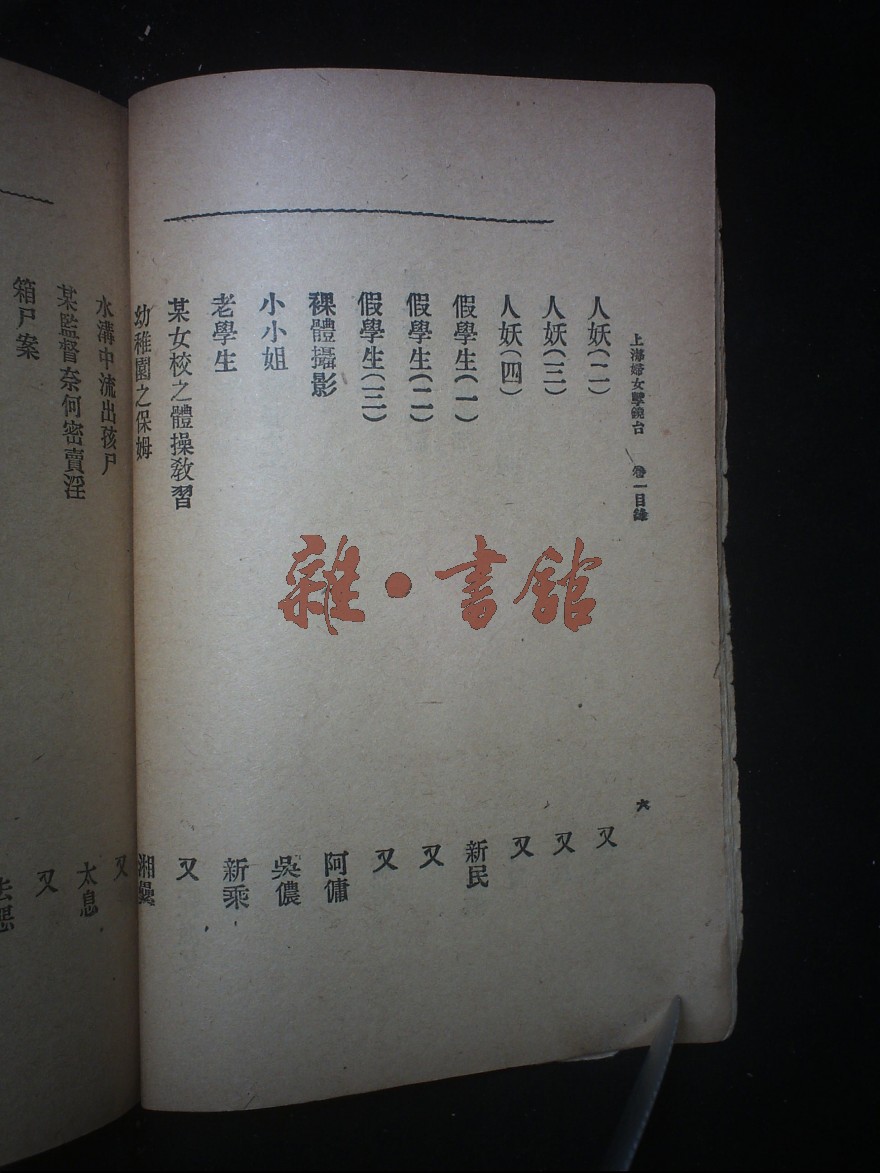 上海婦女孽鏡台 卷一目錄 六
人妖(二) 又
人妖(三) 又
人妖(四) 又
假學生(一) 新民
假學生(二) 又
假學生(三) 又
裸體攝影 阿傭
小小姐 吳儂
老學生 新乘
某女校之體操敎習 又
幼稚園之保姆 湘纍
水溝中流出孩尸 又
某監督奈何密賣淫 太息
箱尸案 又
去惡
雜·書館